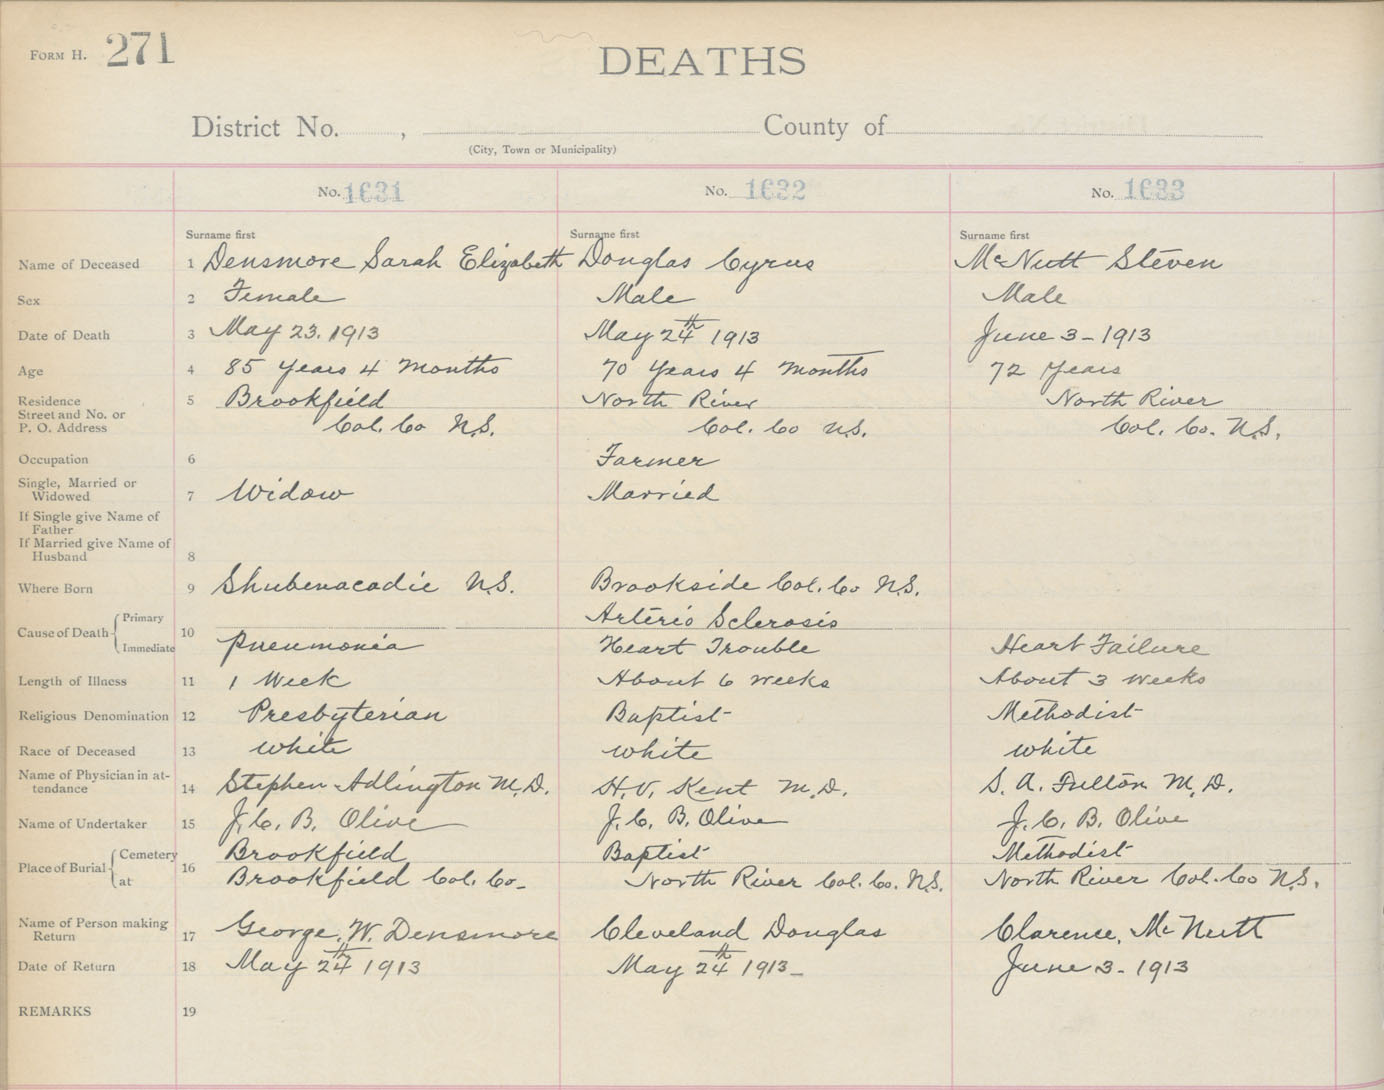 FORM H. 271
DEATHS
District No. , County of
(City, Town or Municipality)
No. 1631 No. 1632 No. 1633
Surname first Surname first Surname first
Name of Deceased 1 Densmore Sarah Elizabeth Douglas Cyrus McNutt Steven
Sex 2 Female Male Male
Date of Death 3 May 23, 1913 May 24th 1913 June 3 - 1913
Age 4 85 Years 4 Months 70 Years 4 Months 72 Years
Residence 5 Brookfield North River North River
Street and No. or
P. O. Address Col. Co N.S. Col. Co N.S. Col. Co. N.S.
Occupation 6 Farmer
Single, Married or
Widowed 7 Widow Married
If Single give Name of
Father
If Married give Name of
Husband 8
Where Born 9 Shubenacadie N.S. Brookside Col. Co N.S.
Cause of Death Primary 10 Arterio Sclerosis
Immediate Pneumonia Heart Trouble Heart Failure
Length of Illness 11 1 Week About 6 weeks About 3 weeks
Religious Denomination 12 Presbyterian Baptist Methodist
Race of Deceased 13 White White White
Name of Physician in at-
tendance 14 Stephen Adlington M.D. H. V. Kent M.D. S. A. Fulton M.D.
Name of Undertaker 15 J. C. B. Olive J. C. B. Olive J. C. B. Olive
Place of Burial Cemetery 16 Brookfield Baptist Methodist
at Brookfield Col. Co- North River Col. Co. N.S. North River Col. Co N.S.
Name of Person making
Return 17 George. W. Densmore Cleveland Douglas Clarence, McNutt
Date of Return 18 May 24th 1913 May 24th 1913- June 3 - 1913
REMARKS 19